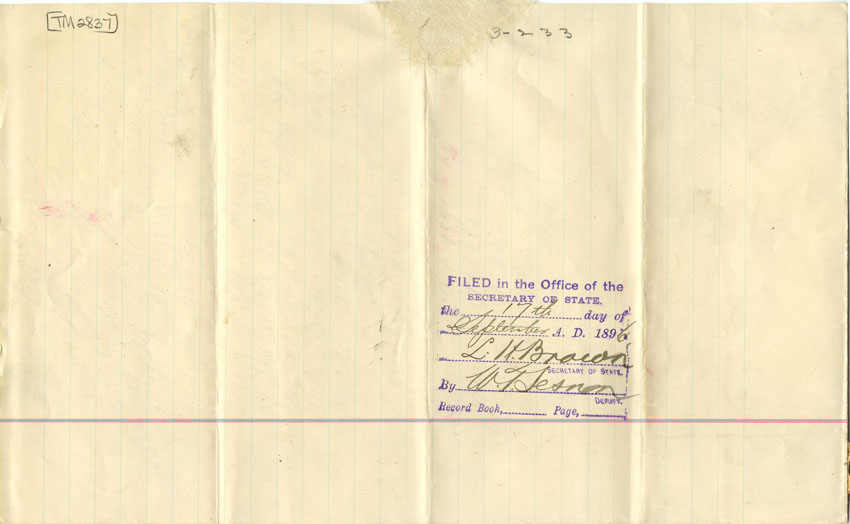 TM2837
3-233
FILED in the Office of the
SECRETARY OF STATE.
the 17th day of
September A. D. 1896
L. H. Brown
SECRETARY OF STATE
By W. T.
DEPUTY.
Record Book, Page,